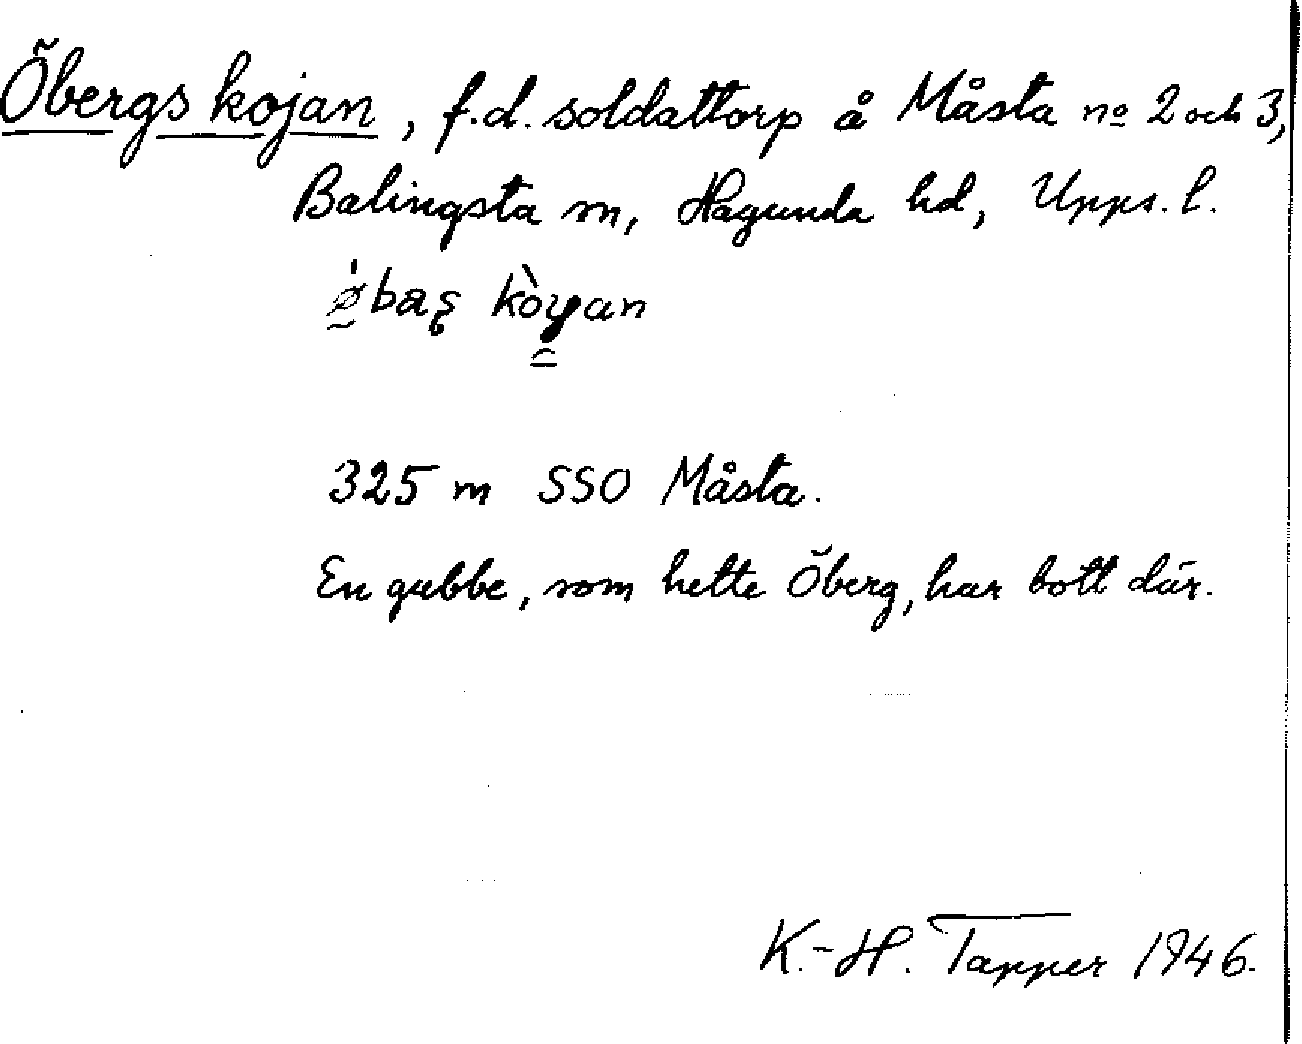 Öbergs kojan, f.d. soldattorp å Måsta nº 2 och 3,
Balingsta sn, Hagunda hd, Upps. l.
325 m SSO Måsta.
En gubbe, som hette Öberg, har bott där.
K.-H. Tapper 1946.